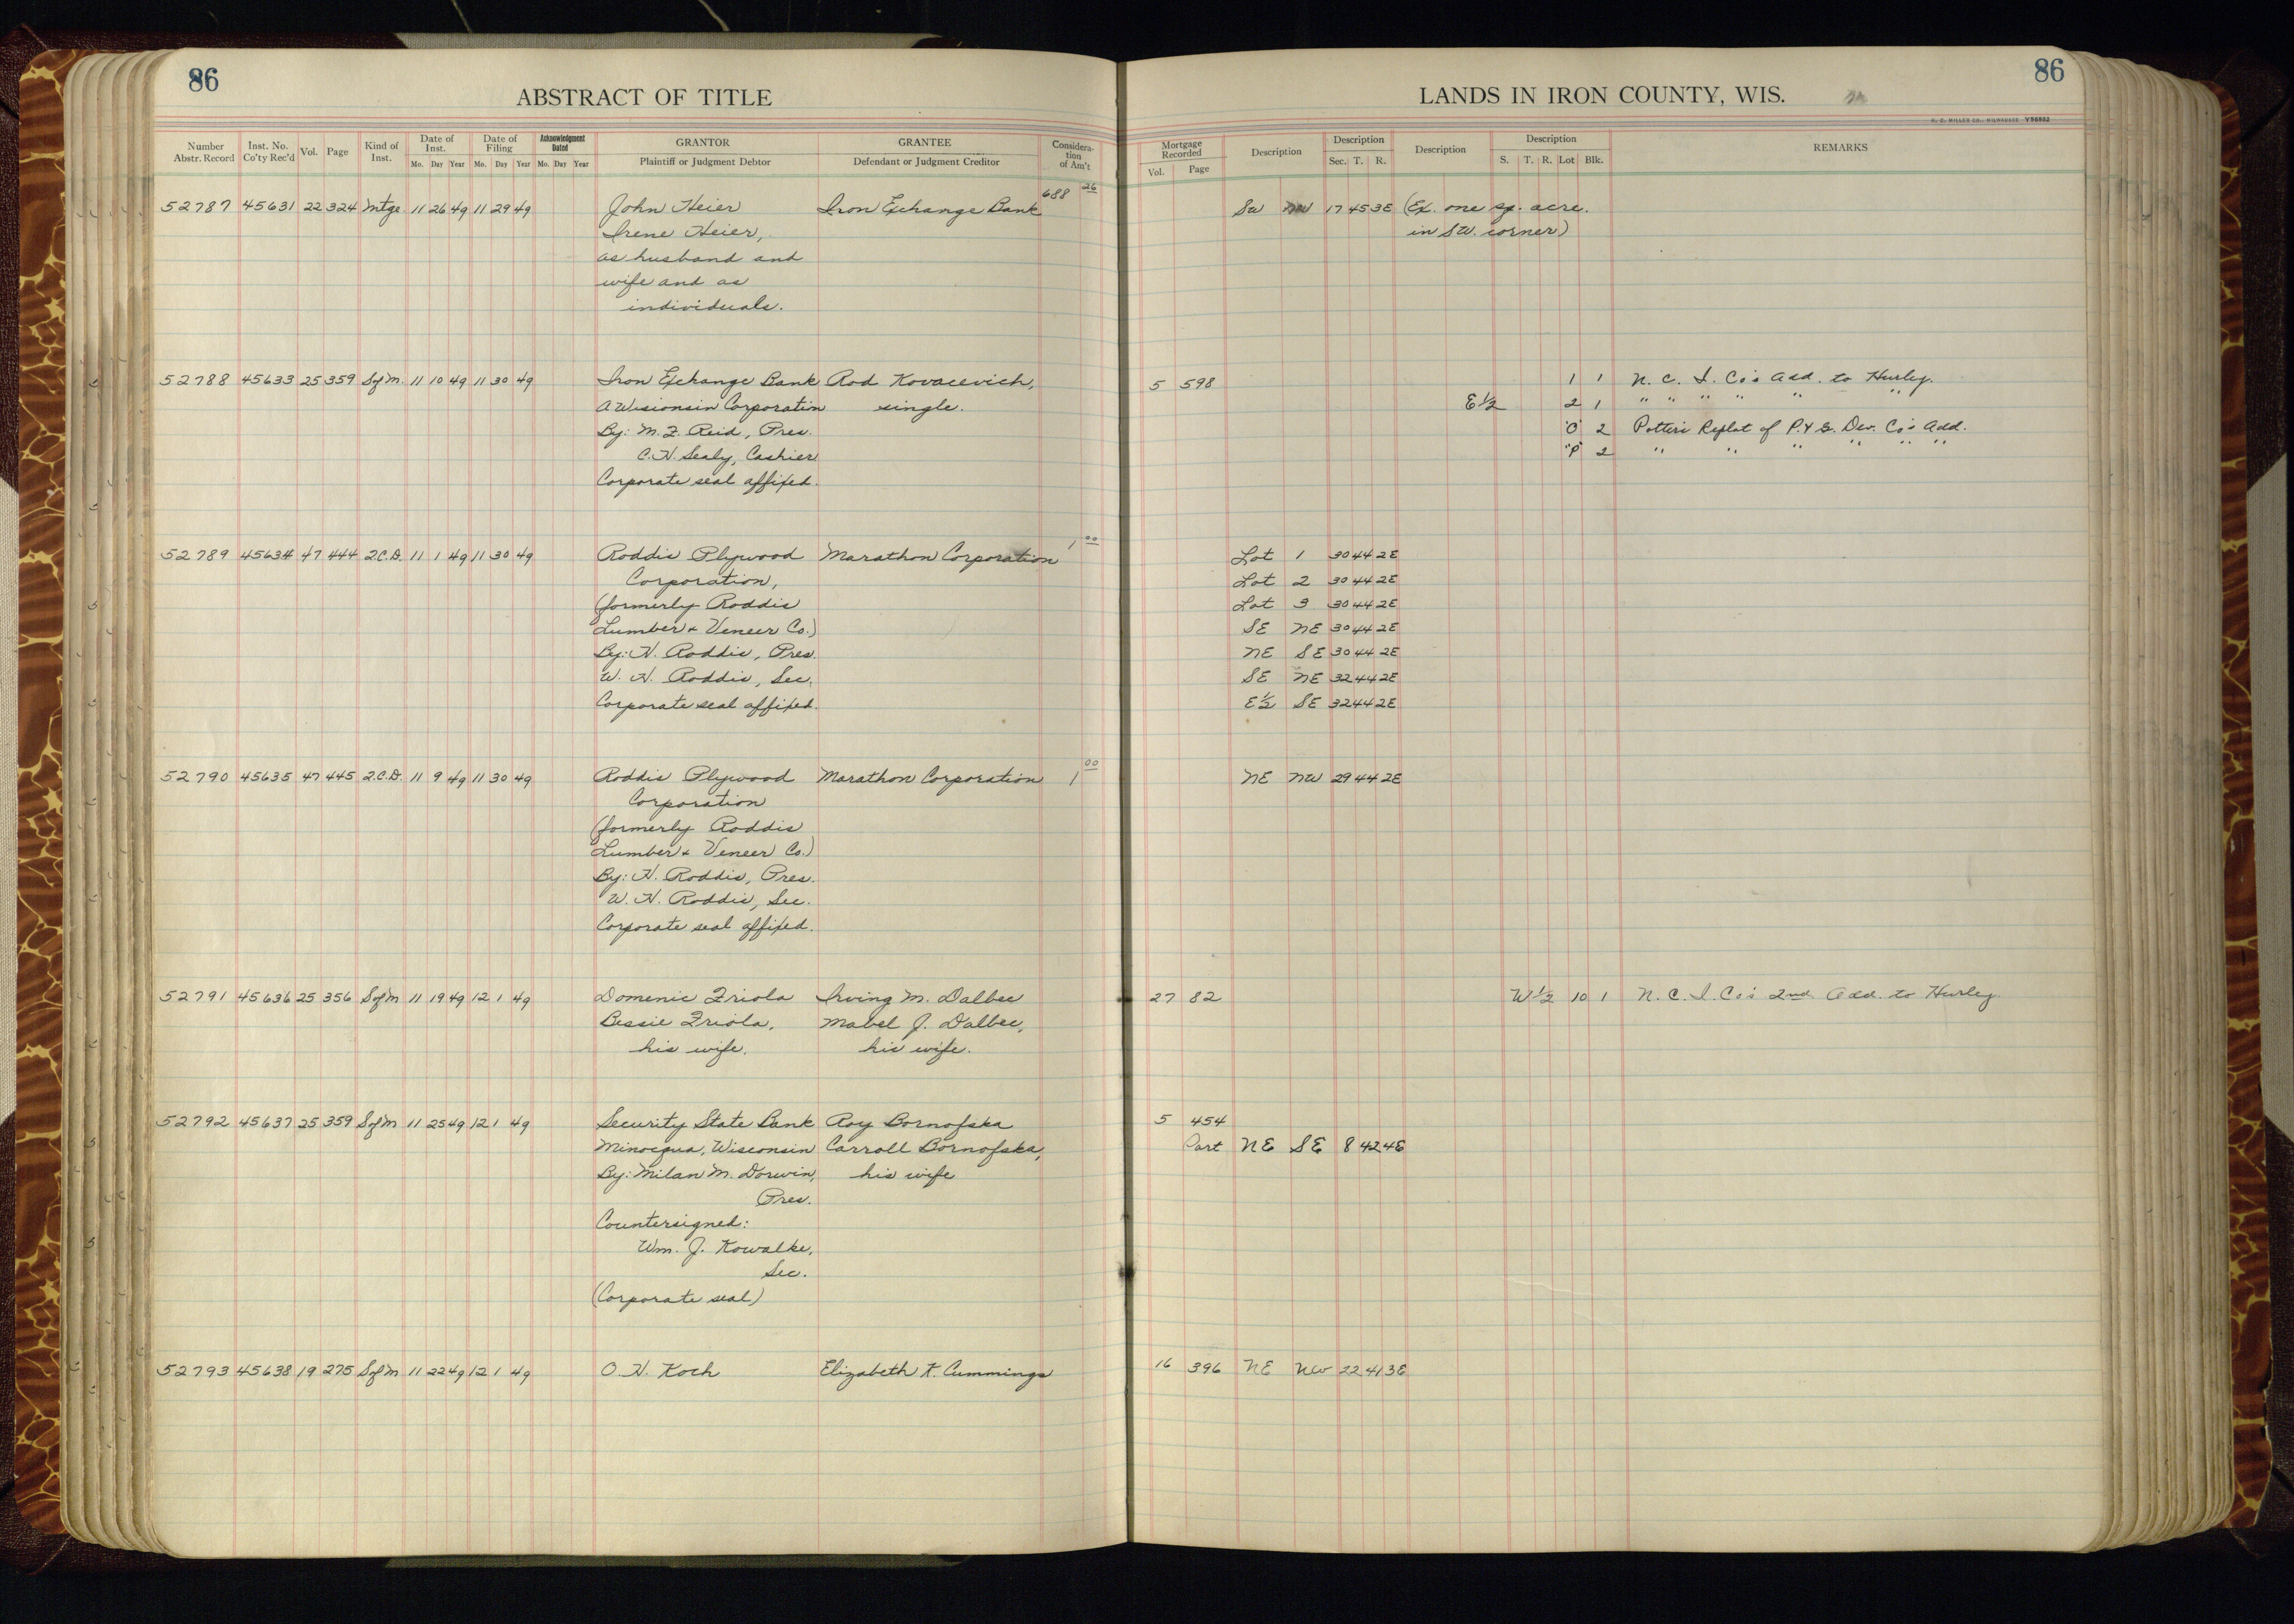 86
ABSTRACT OF TITLE
Number Abstr. Record Inst. No. Co'ty Rec'd Vol. Page Kind of Inst. Date of Inst. Mo. Day Year Date of Filing Mo. Day Year Acknowledgment Dated Mo. Day Year GRANTOR Plaintiff or Judgment Debtor GRANTEE Defendant or Judgment Creditor Considera-tion of Am't
52787 45631 22 324 Mtge 11 26 49 11 29 49 John Heier Iron Exchange Bank 688 26
Irene Heier,
as husband and
wife and as
individuals.
52788 45633 25 359 Sof M. 11 10 49 11 30 49 Iron Exchange Bank Rod Kovacevich,
A Wisconsin Corporation single.
By: M. Z. Reid, Pres.
C. H. Sealy, Cashier
Corporate seal affixed.
52789 45634 47 444 2.C.D. 11 1 49 11 30 49 Roddis Plywood Marathon Corporation 1 00
Corporation,
(formerly Roddis
Lumber & Veneer Co.)
By: H. Roddis, Pres.
W. H. Roddis, Sec.
Corporate seal affixed.
52790 45635 47 445 2.C.D. 11 9 49 11 30 49 Roddis Plywood Marathon Corporation 1 00
Corporation
(formerly Roddis
Lumber & Veneer Co.)
By: H. Roddis, Pres.
W. H. Roddis, Sec.
Corporate seal affixed.
52791 45636 25 356 Sof M 11 19 49 12 1 49 Domenic Friola Irving M. Dalbec
Bessie Friola, Mabel J. Dalbec,
his wife. his wife.
52792 45637 25 359 Sof M 11 25 49 12 1 49 Security State Bank Roy Bornofska
Minocqua, Wisconsin Carroll Bornofska,
By: Milan M. Dorwin, his wife
Pres.
Countersigned:
Wm. J. Kowalke,
Sec.
(Corporate seal)
52793 45638 19 275 Sof M 11 22 49 12 1 49 O. H. Koch Elizabeth K. Cummings
86
LANDS IN IRON COUNTY, WIS.
H. C. MILLER CO., MILWAUKEE V56852
Mortgage Recorded Vol. Page Description Description Sec. T. R. Description Description S. T. R. Lot Blk. REMARKS
SW NW 17 45 3E (Ex. one sq. acre.
in SW. corner)
5 598 1 1 N. C. I. Co's Add. to Hurley.
E 1/2 2 1 " " " " " "
"O" 2 Potter's Replat of P. & S. Dev. Co's Add.
"P" 2 " " " " " "
Lot 1 30 44 2E
Lot 2 30 44 2E
Lot 3 30 44 2E
SE NE 30 44 2E
NE SE 30 44 2E
SE NE 32 44 2E
E 1/2 SE 32 44 2E
NE NW 29 44 2E
27 82 W 1/2 10 1 N. C. I. Co's 2nd Add. to Hurley
5 454
Part NE SE 8 42 4E
16 396 NE NW 22 41 3E